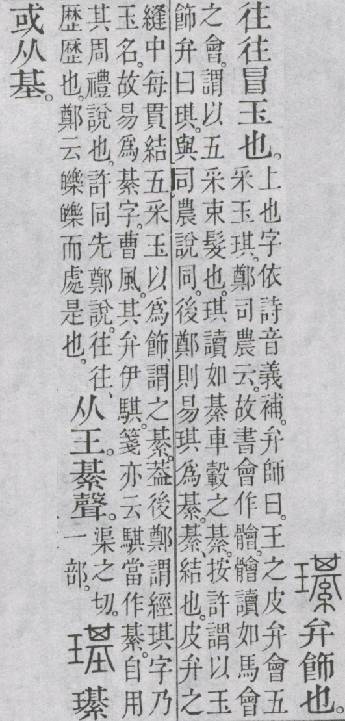 𤪌弁飾也。
往往冒玉也。
上也字依詩音義補。弁師曰。王之皮弁會五
采玉琪。鄭司農云。故書會作䯤。䯤讀如馬會
之會。謂以五采束髮也。琪讀如綦車轂之綦。按許謂以玉
飾弁曰琪。與司農說同。後鄭則易琪爲綦。綦、結也。皮弁之
縫中每貫結五采玉以爲飾謂之綦。葢後鄭謂經琪字乃
玉名。故易爲綦字。曹風。其弁伊騏。箋亦云騏當作綦。自用
其周禮說也。許同先鄭說。往往、
歴歴也。鄭云皪皪而處是也。
从王。綦聲。
渠之切。
一部。
璂 𤪌
或从基。